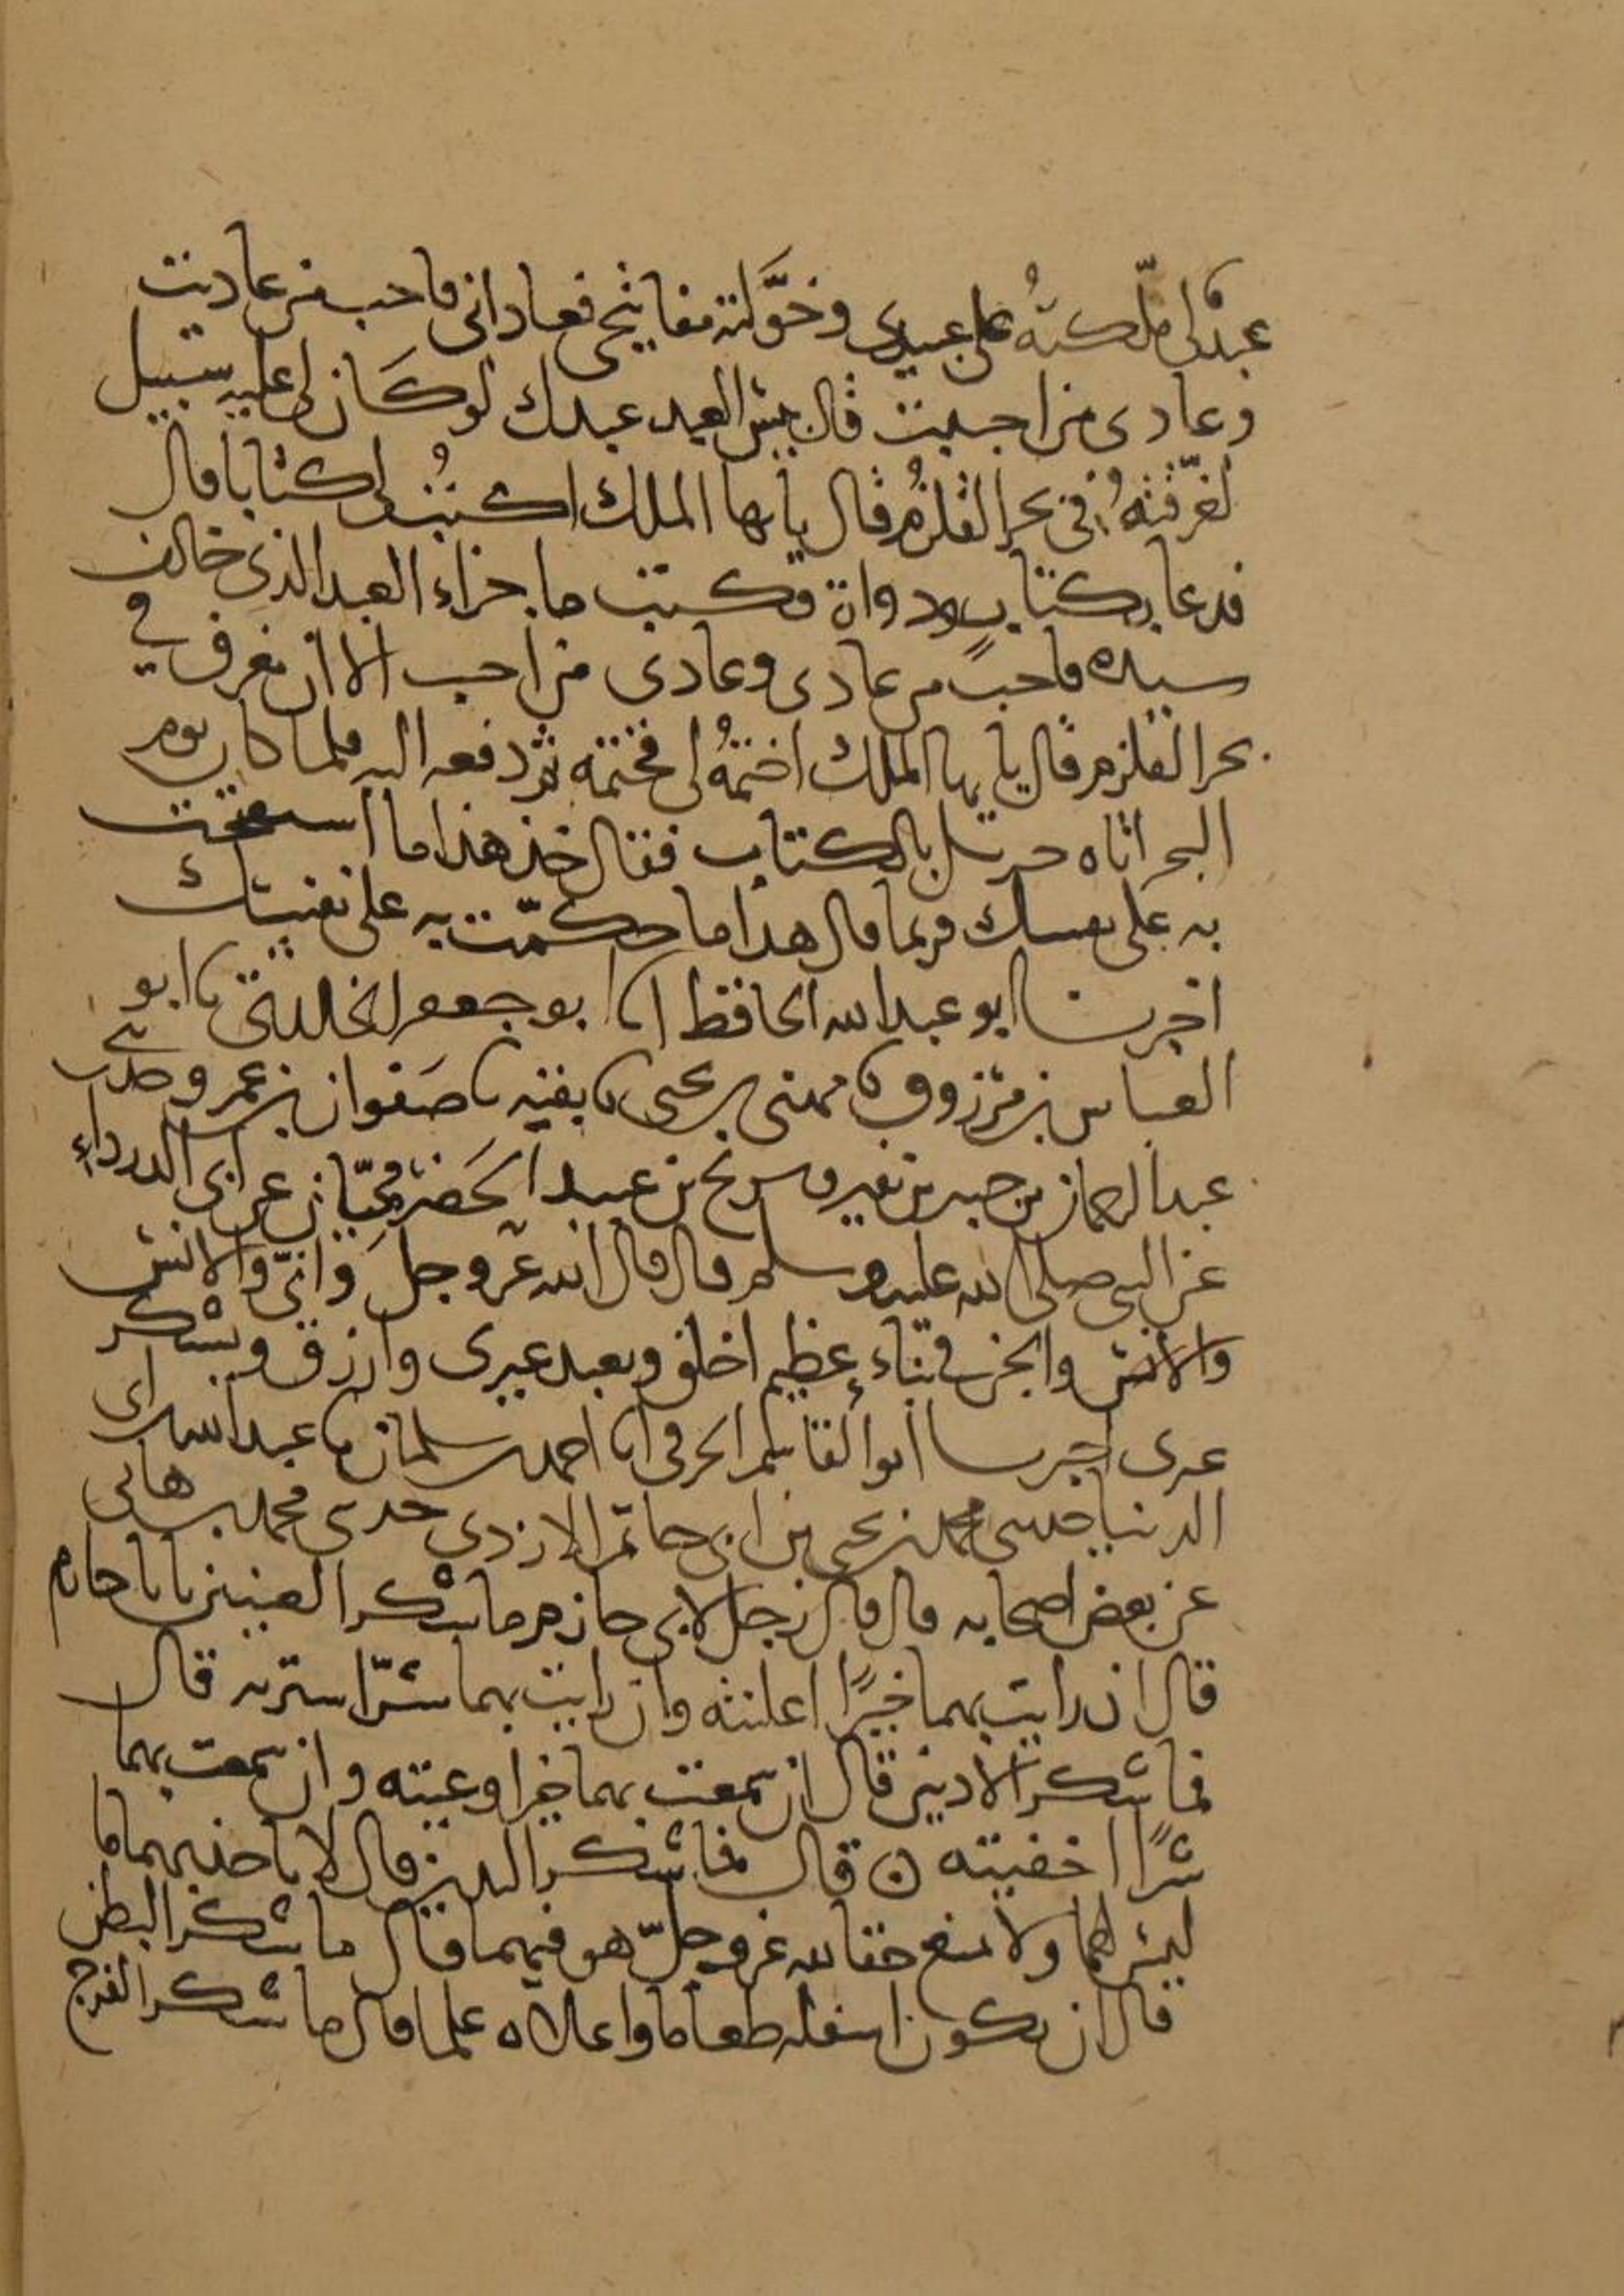 عبد لي ملّكتهُ على عبيدي وخوَّلته مفاتيحي فعاداني فاحب من عاديت
وعادى من احببت قال بيس العبد عبدك لو كان لي عليه سبيل
لغرّقتهُ في بحر القلزم فقال يأيها الملك اكتبُ لي كتابا قال
فدعا بكتاب ودواة فكتب ما جزاء العبد الذي خالف
سيده فاحب من عادى وعادى من احب الا ان يغرق في
بحر القلزم قال يأيها الملك اختمهُ لي فختمه ثم دفعه اليه فلما كان يوم
البحر اتاه جبريل بالكتاب فقال خذ هذا ما استفتحت
به على نفسك وربما قال هذا ما حكمت به على نفسك
اخبرنا ابو عبد الله الحافظ انا ابو جعفر نا ابو
العباس بن مرزوق نا مهنى بن يحيى نا بقية نا صفوان بن عمرو حدثني
عبد الرحمان بن جبير بن نفير وسريح بن عبيد الحضرميان عن ابي الدرداء
عن النبي صلى الله عليه وسلم قال قال الله عز وجل وانيّ والانس
والانس والجن في نباء عظيم اخلق ويعبد غيري وارزق ويشكر
غيري اخبرنا ابو القاسم الحرفي انا احمد بن سلمان نا عبد الله بن ابي
الدنيا حدثني محمد بن يحيى بن ابي حاتم الازدي حدثني محمد بن هاني
عن بعض اصحابه قال قال رجل لابي حازم ما شكر العينين يا با حازم
قال ان رايت بهما خيرًا اعلنته وان رايت بهما شرّا سترته قال
فما شكر الاذنين قال ان سمعت بهما خيرا وعيته وان سمعت بهما
شرًا اخفيته ن قال فما شكر اليدين قال لا تاخذ بهما ما
ليس لهما ولا تمنع حقا لله عز وجلّ هو فيهما قال ما شكر البطن
قال ان يكون اسفله طعاما واعلاه علما قال ما شكر الفرج